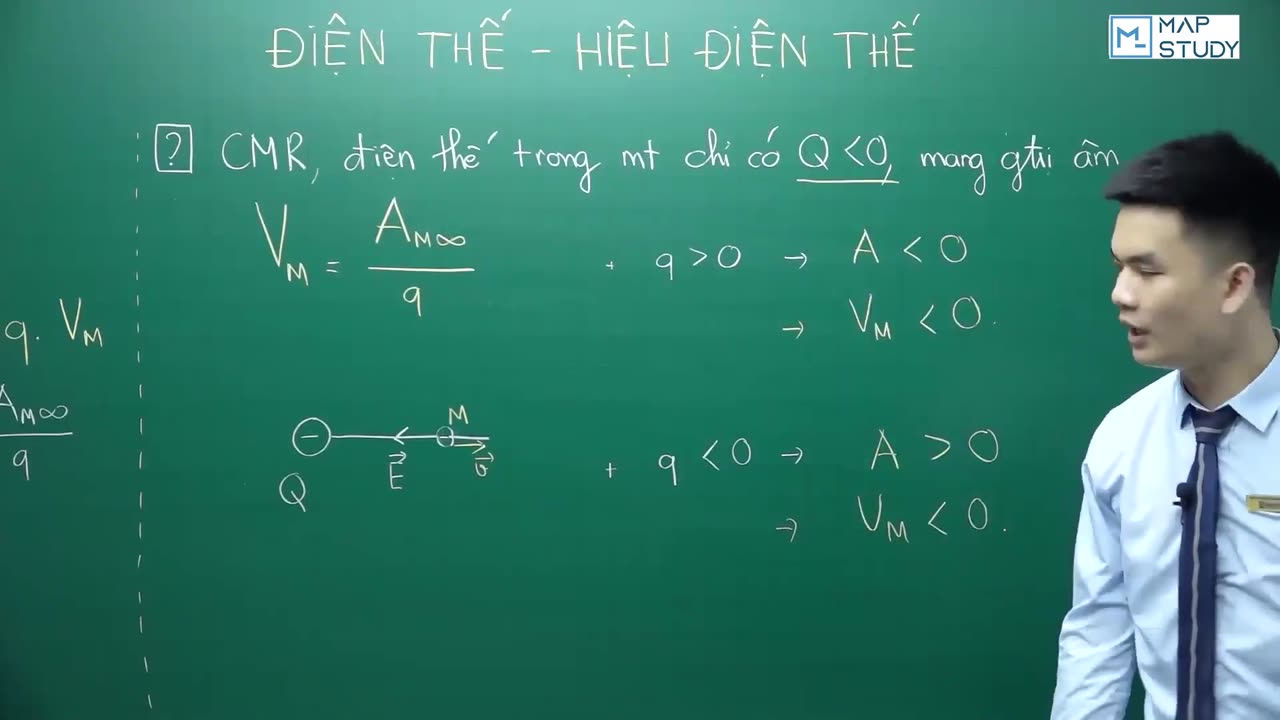 ĐIỆN THẾ - HIỆU ĐIỆN THẾ
MAP
STUDY
? CMR, điện thế trong mt chỉ có Q < 0, mang gtrị âm
V_M = A_M∞ / q
+ q > 0 → A < 0
→ V_M < 0.
q. V_M
A_M∞ / q
M
⊖
E⃗
v⃗
Q
+ q < 0 → A > 0
→ V_M < 0.